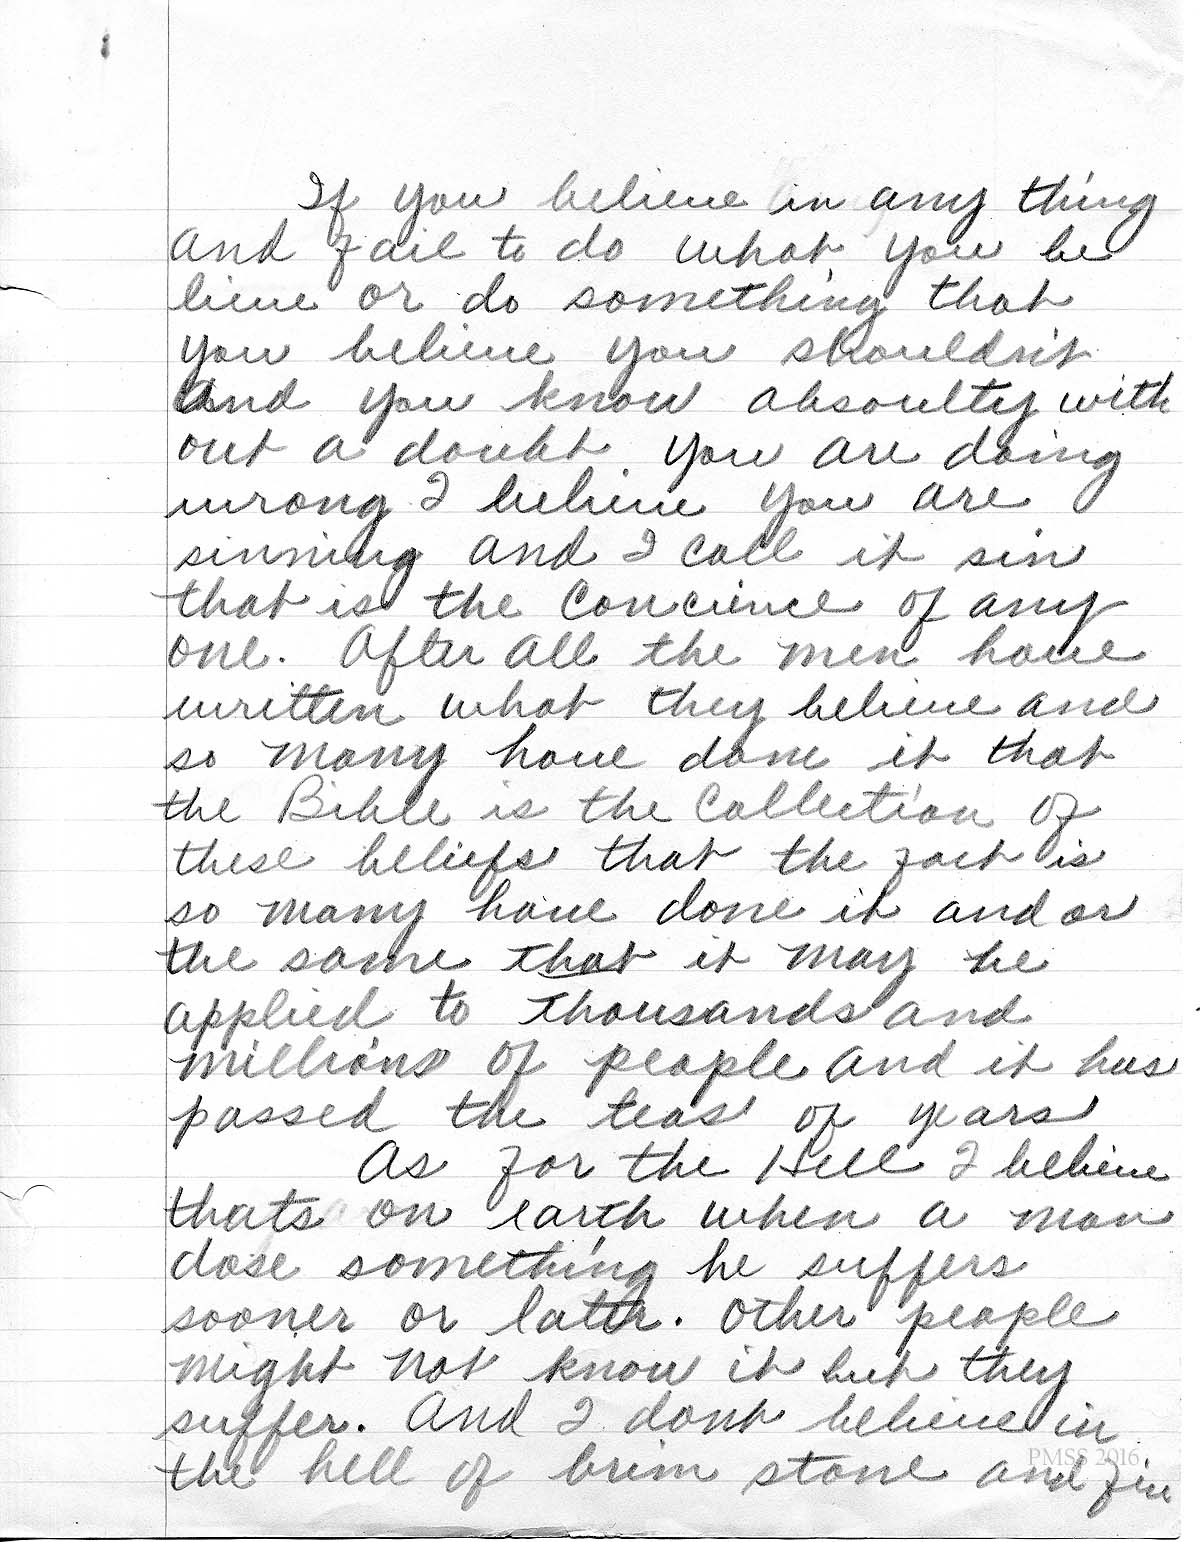 If you believe in any thing
and fail to do what you be
lieve or do something that
you believe you shouldn't
and you know absoulty with
out a doubt you are doing
wrong I believe you are
sinning and I call it sin
that is the Concience of any
one. After all the men have
written what they believe and
so many have done it that
the Bible is the Collection of
these beliefs that the fact is
so many have done it and or
the same that it may be
applied to thousands and
millions of people and it has
passed the teas of years
As for the Hell I believe
thats on earth when a man
dose something he suffers
sooner or later. Other people
might not know it but they
suffer. And I dont believe in
the hell of brim stone and fire
PMSS 2016